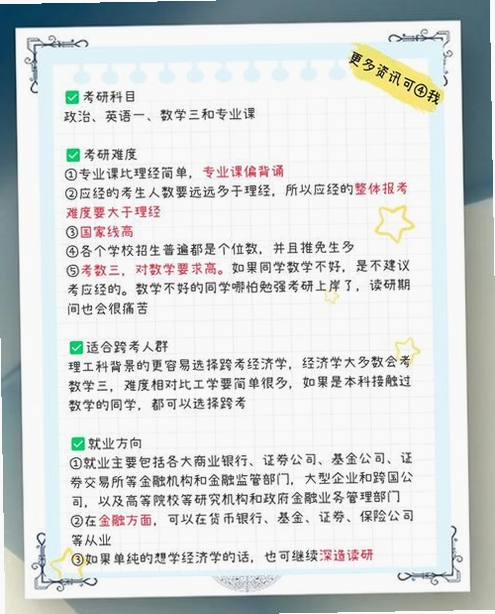 更多资讯可④我
✅考研科目
政治、英语一、数学三和专业课
✅考研难度
①专业课比理经简单，专业课偏背诵
②应经的考生人数要远远多于理经，所以应经的整体报考
难度要大于理经
③国家线高
④各个学校招生普遍都是个位数，并且推免生多
⑤考数三，对数学要求高。如果同学数学不好，是不建议
考应经的。数学不好的同学哪怕勉强考研上岸了，读研期
间也会很痛苦
✅适合跨考人群
理工科背景的更容易选择跨考经济学，经济学大多数会考
数学三，难度相对比工学要简单很多，如果是本科接触过
数学的同学，都可以选择跨考
✅就业方向
①就业主要包括各大商业银行、证券公司、基金公司、证
券交易所等金融机构和金融监管部门，大型企业和跨国公
司，以及高等院校等研究机构和政府金融业务管理部门
②在金融方面，可以在货币银行、基金、证券、保险公司
等从业
③如果单纯的想学经济学的话，也可继续深造读研